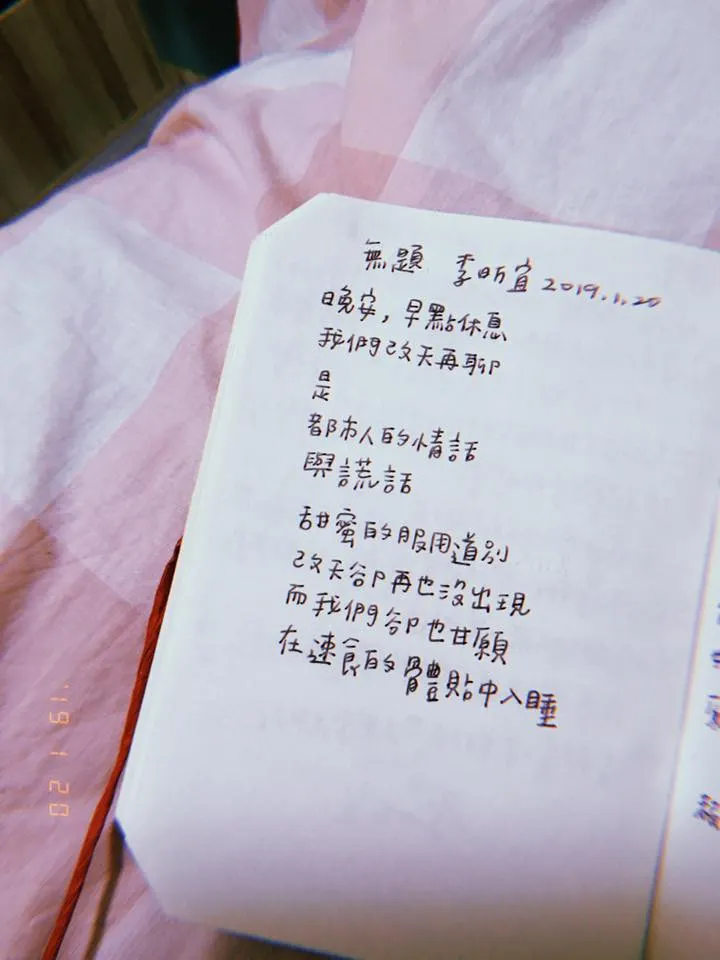 無題 李昕宜 2019.1.20
晚安，早點休息
我們改天再聊
是
都市人的情話
與謊話
甜蜜的服用道別
改天卻再也沒出現
而我們卻也甘願
在速食的體貼中入睡
'19 1 20